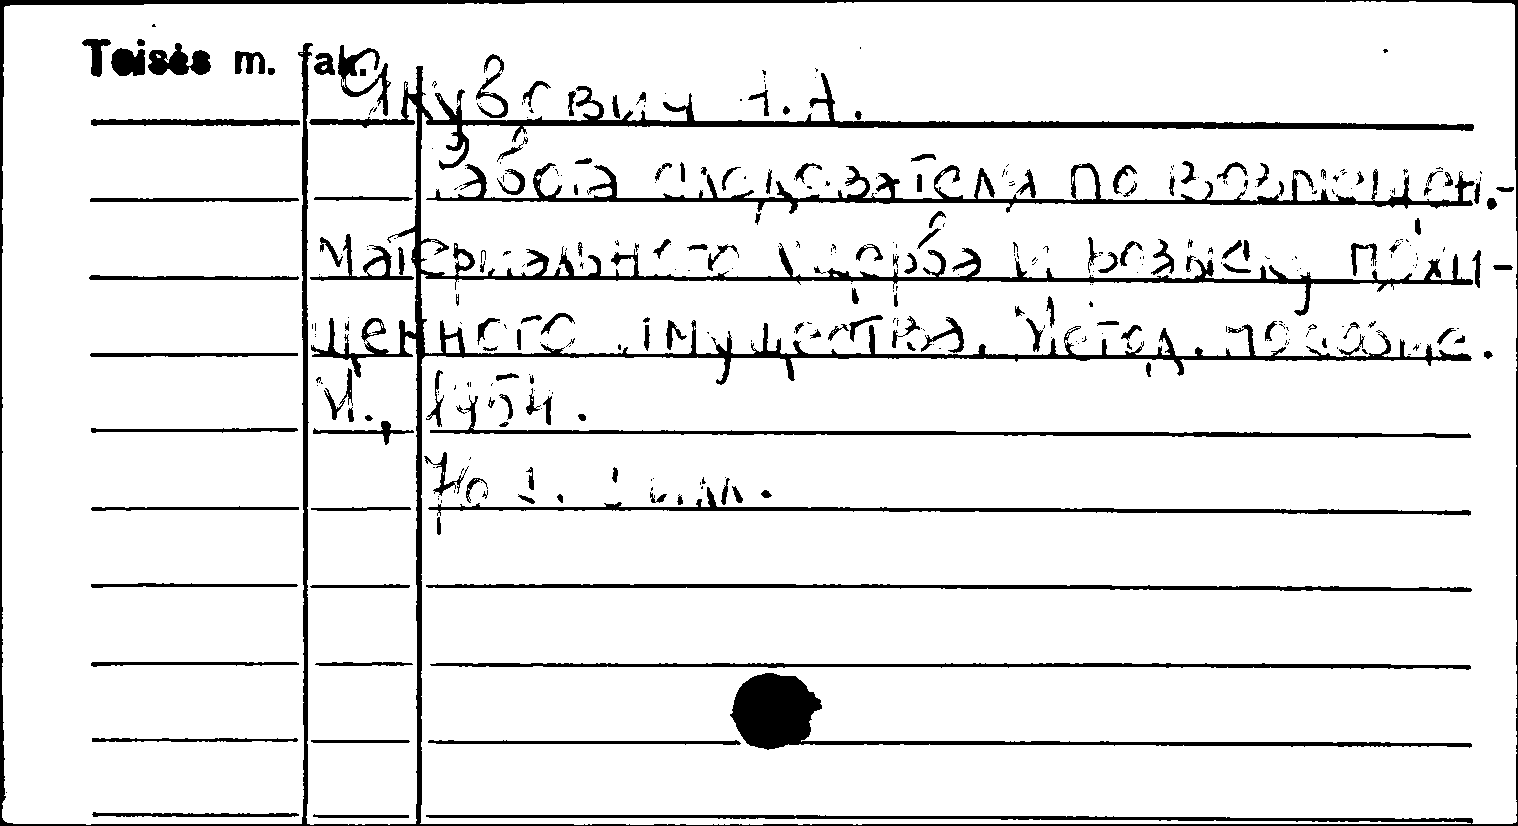 Teisės m. fak.
Якубович А.А.
Работа следователя по возмещен.-
материального ущерба и розыску похи-
щенного имущества. Метод. пособие.
М., 1954.
70